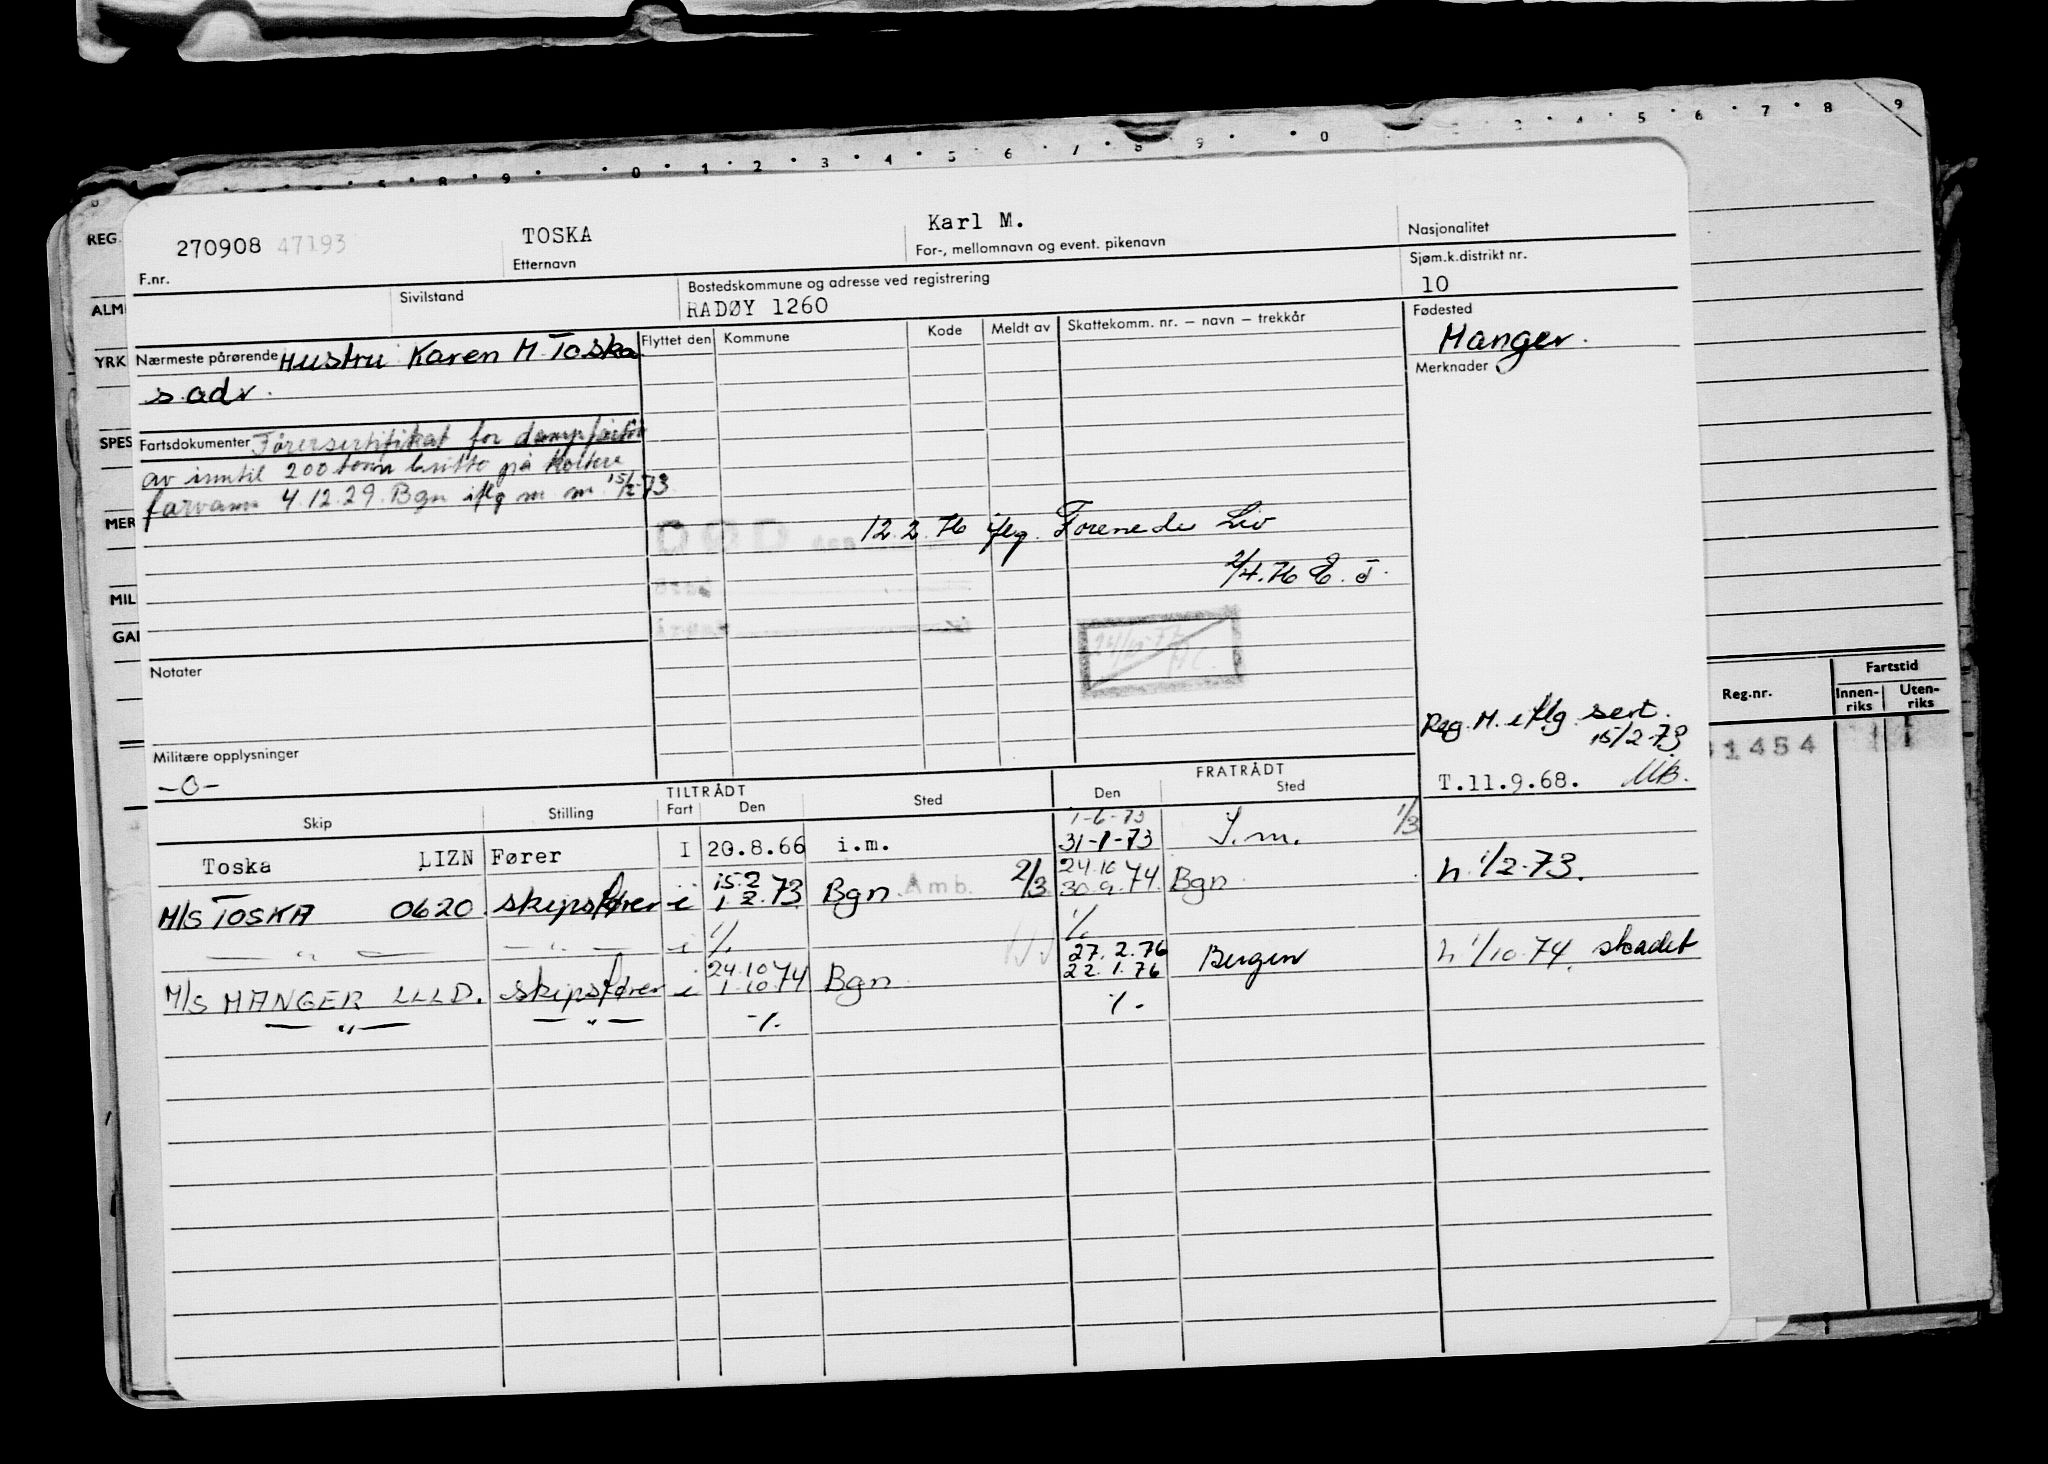 9 0 1 2 3 4 5 6 7 8 9 0 3 4 5 6 7 8 9
REG.
270908 47193 TOSKA Karl M. Nasjonalitet
F.nr. Etternavn For-, mellomnavn og event. pikenavn Sjøm.k.distrikt nr.
10
Sivilstand Bostedskommune og adresse ved registrering Fødested
ALM
RADØY 1260 Manger.
YRK
Nærmeste pårørende Hustru Karen M Toska Flyttet den Kommune Kode Meldt av Skattekomm. nr. – navn – trekkår Merknader
s. adr.
SPES
Fartsdokumenter Førersertifikat for dampfartøi
av inntil 200 tonn brutto på
farvann 4.12.29. Bgn iflg m m 15/2-73
MER
DØD 12.2.76 iflg. Forenede Liv
2/4.76 E. J.
MIL
GAI
Notater
Reg. M. iflg. sert.
15/2-73
Militære opplysninger
-0-
T.11.9.68. MB.
Reg.nr. Fartstid
Innen-riks Uten-riks
1454
TILTRÅDT FRATRÅDT
Skip Stilling Fart Den Sted Den Sted
1-6-73
Toska LIZN Fører I 20.8.66 i.m. 31-1-73 I.m. 1/3
15.2 24.10
M/S TOSKA 0620 skipsfører i 1.2.73 Bgn. Amb. 2/3 30.9.74 Bgn h 1/2-73.
— " — — " — i %. %.
24.10 27.2.76
M/S MANGER LLLD. skipsfører i 1.10.74 Bgn 22.1.76 Bergen h 1/10-74. skadet
— " — — " — -%. %-